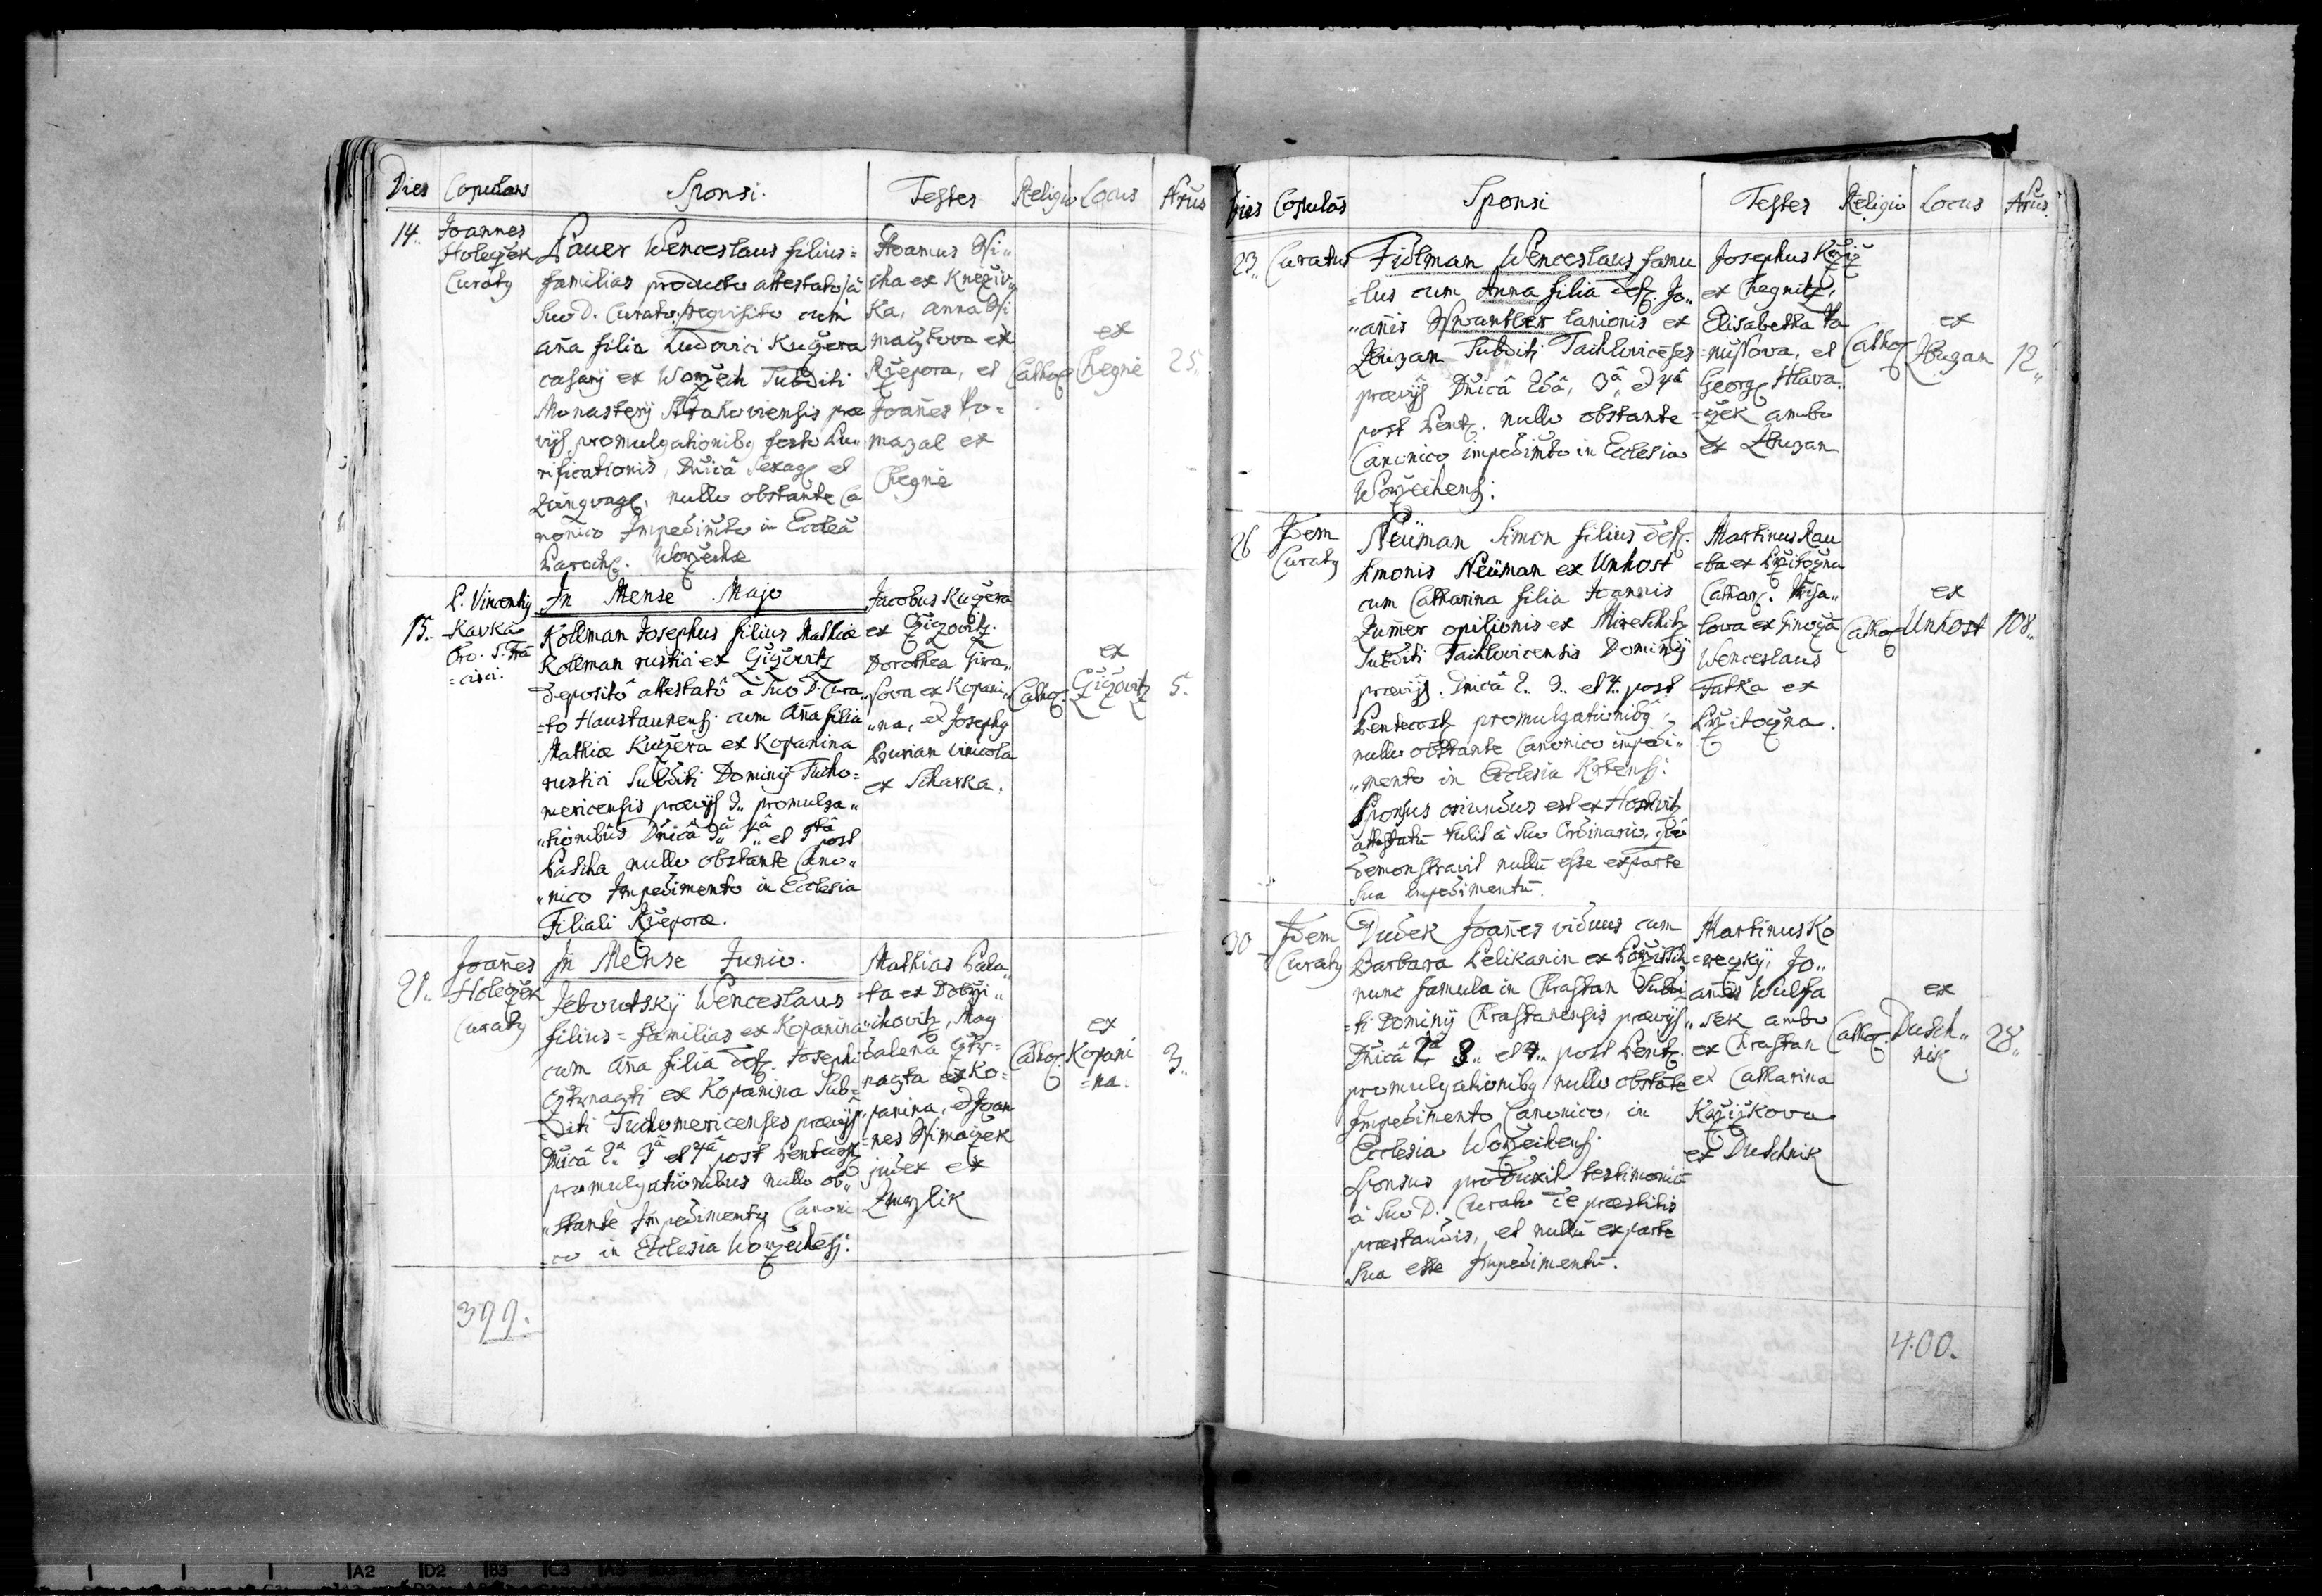 Dies Copulans Sponsi. Testes Religio Locus Nrus
14. Joannes
Holeczek
Curatq
Bauer Wenceslaus filius=
familias producto attestato à
Suo D. Curato requisito cum
Aña filia Ludovici Kuczera
casarij ex Worzech Subditi
Monasterij Strahoviensis præ
vijs promulgationibq festo Pu„
rificationis, Dnicâ Sexag. et
Quinquag. nullo obstante Ca
nonico Impedimto in Ecclea
Paroch. Worzecha
Adamus
cha ex Knezew
ka, Anna Wi
ex
Rzepora, et
Joañes Do=
mazal ex
Chegnê
Cathog
ex
Chegnê
25.
P. Vincentq
15. Kavka
Ord. S. Frā
=cisci.
In Mense Majo
Kollman Josephus filius Mathiæ
Kollman rustici ex Gigovitz
deposito attestatô à Suo D. Cura„
=to Haustaunensj cum Aña filia
Mathiæ Kuczera ex Kopanina
rustici Subditi Dominij Tucho=
mericensis prævijs 3. promulga„
„tionibus Dnicâ 3â 4â et 5tâ post
Pascha nullo obstante Cano„
„nico Impedimento in Ecclesia
Filiali Rzeporæ.
Jacobus Kuczera
ex Gigovitz.
Dorothea Gira„
sova ex Kopani„
„na, et Josephq
Burian vinicola
ex Scharka.
Cathog.
ex
Gigovitz
5.
Joañes
21. Holeczek
Curatq
In Mense Junio.
Jeboutskÿ Wenceslaus
filius=familias ex Kopanina
cum Aña filia def. Josephi
ex Kopanina Sub=
=diti Tuchomericenses prævijs
Dnicâ 2a 3a et 4tâ post Pentecost
promulgationibus nullo ob„
„stante Impedimento Canoni
=co in Ecclesia Worzechêsj.
Mathias Pala„
=ta ex Dobrzi„
chovitz, Mag
dalena
ex Ko=
panina, et Joan
=nes Wimaczek
judex ex
Zmrzlik
Cathog.
ex
Kopani
=na.
3.
399.
Dies Copulãs Sponsi Testes Religio Locus Nrus.
23. Curatus
Fidlman Wenceslaus famu
=lus cum Anna filia def. Jo„
„añis Schwantler lanionis ex
Zbuzan Subditi Tachlovicẽses
prævijs Dnicâ 2dâ, 3â et 4â
post Pent. nullo obstante
Canonico impedimto in Ecclesia
Worzechensj:
Josephus Krziz
ex Chegnitz,
Elisabetha Ha
=nussova, et
Georg Hlava„
=czek ambo
ex Zbuzan
Cathog
ex
Zbuzan
12.
26 Idem
Curatq
Neüman Simon filius def.
Simonis Neüman ex Unhost
cum Catharina filia Joannis
Zumer opilionis ex Mireschitz
Subditi Tachlovicensis Dominij
prævijs. Dnicâ 2. 3. et 4. post
Pentecost promulgationibq
nullo obstante Canonico impedi„
„mento in Ecclesia
Sponsus oriundus est ex Hostivitz
attestatũ tulit à Suo Ordinario, quo
demonstravit nullũ esse ex parte
Sua Impedimentũ.
Martinus Rau
=ba ex Przitoczna
Cathar.
ex Ginocza
Wenceslaus
Fatka ex
Przitoczna.
Cathog
ex
Unhost
108.
30 Idem
Curatq
Dudek Joañes viduus cum
Barbara Pelikanin ex
nunc famula in Chrastan Subdi
=ti Dominij Chrastanensis prævijs
Dnicâ 2a 3. et 4. post Pent.
promulgationibq nullo obstãte
Impedimento Canonico, in
Ecclesia Worzechensj.
Sponsus produxit testimoniũ
à Suo D. Curato de præstitis
præstandis, et nullũ ex parte
Sua esse Impedimentũ.
Martinus Ko
=reczkÿ, Jo„
añes Wulfa
sek ambo
ex Chrastan
et Catharina
Krzizkova
ex Duschnik
Cathog.
ex
Dusch„
nik
28.
400.